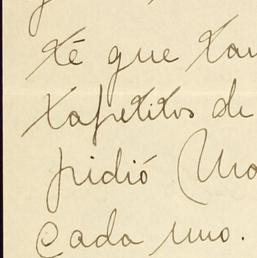 té que tan
tapetitos de
pidió Ma
cada uno.